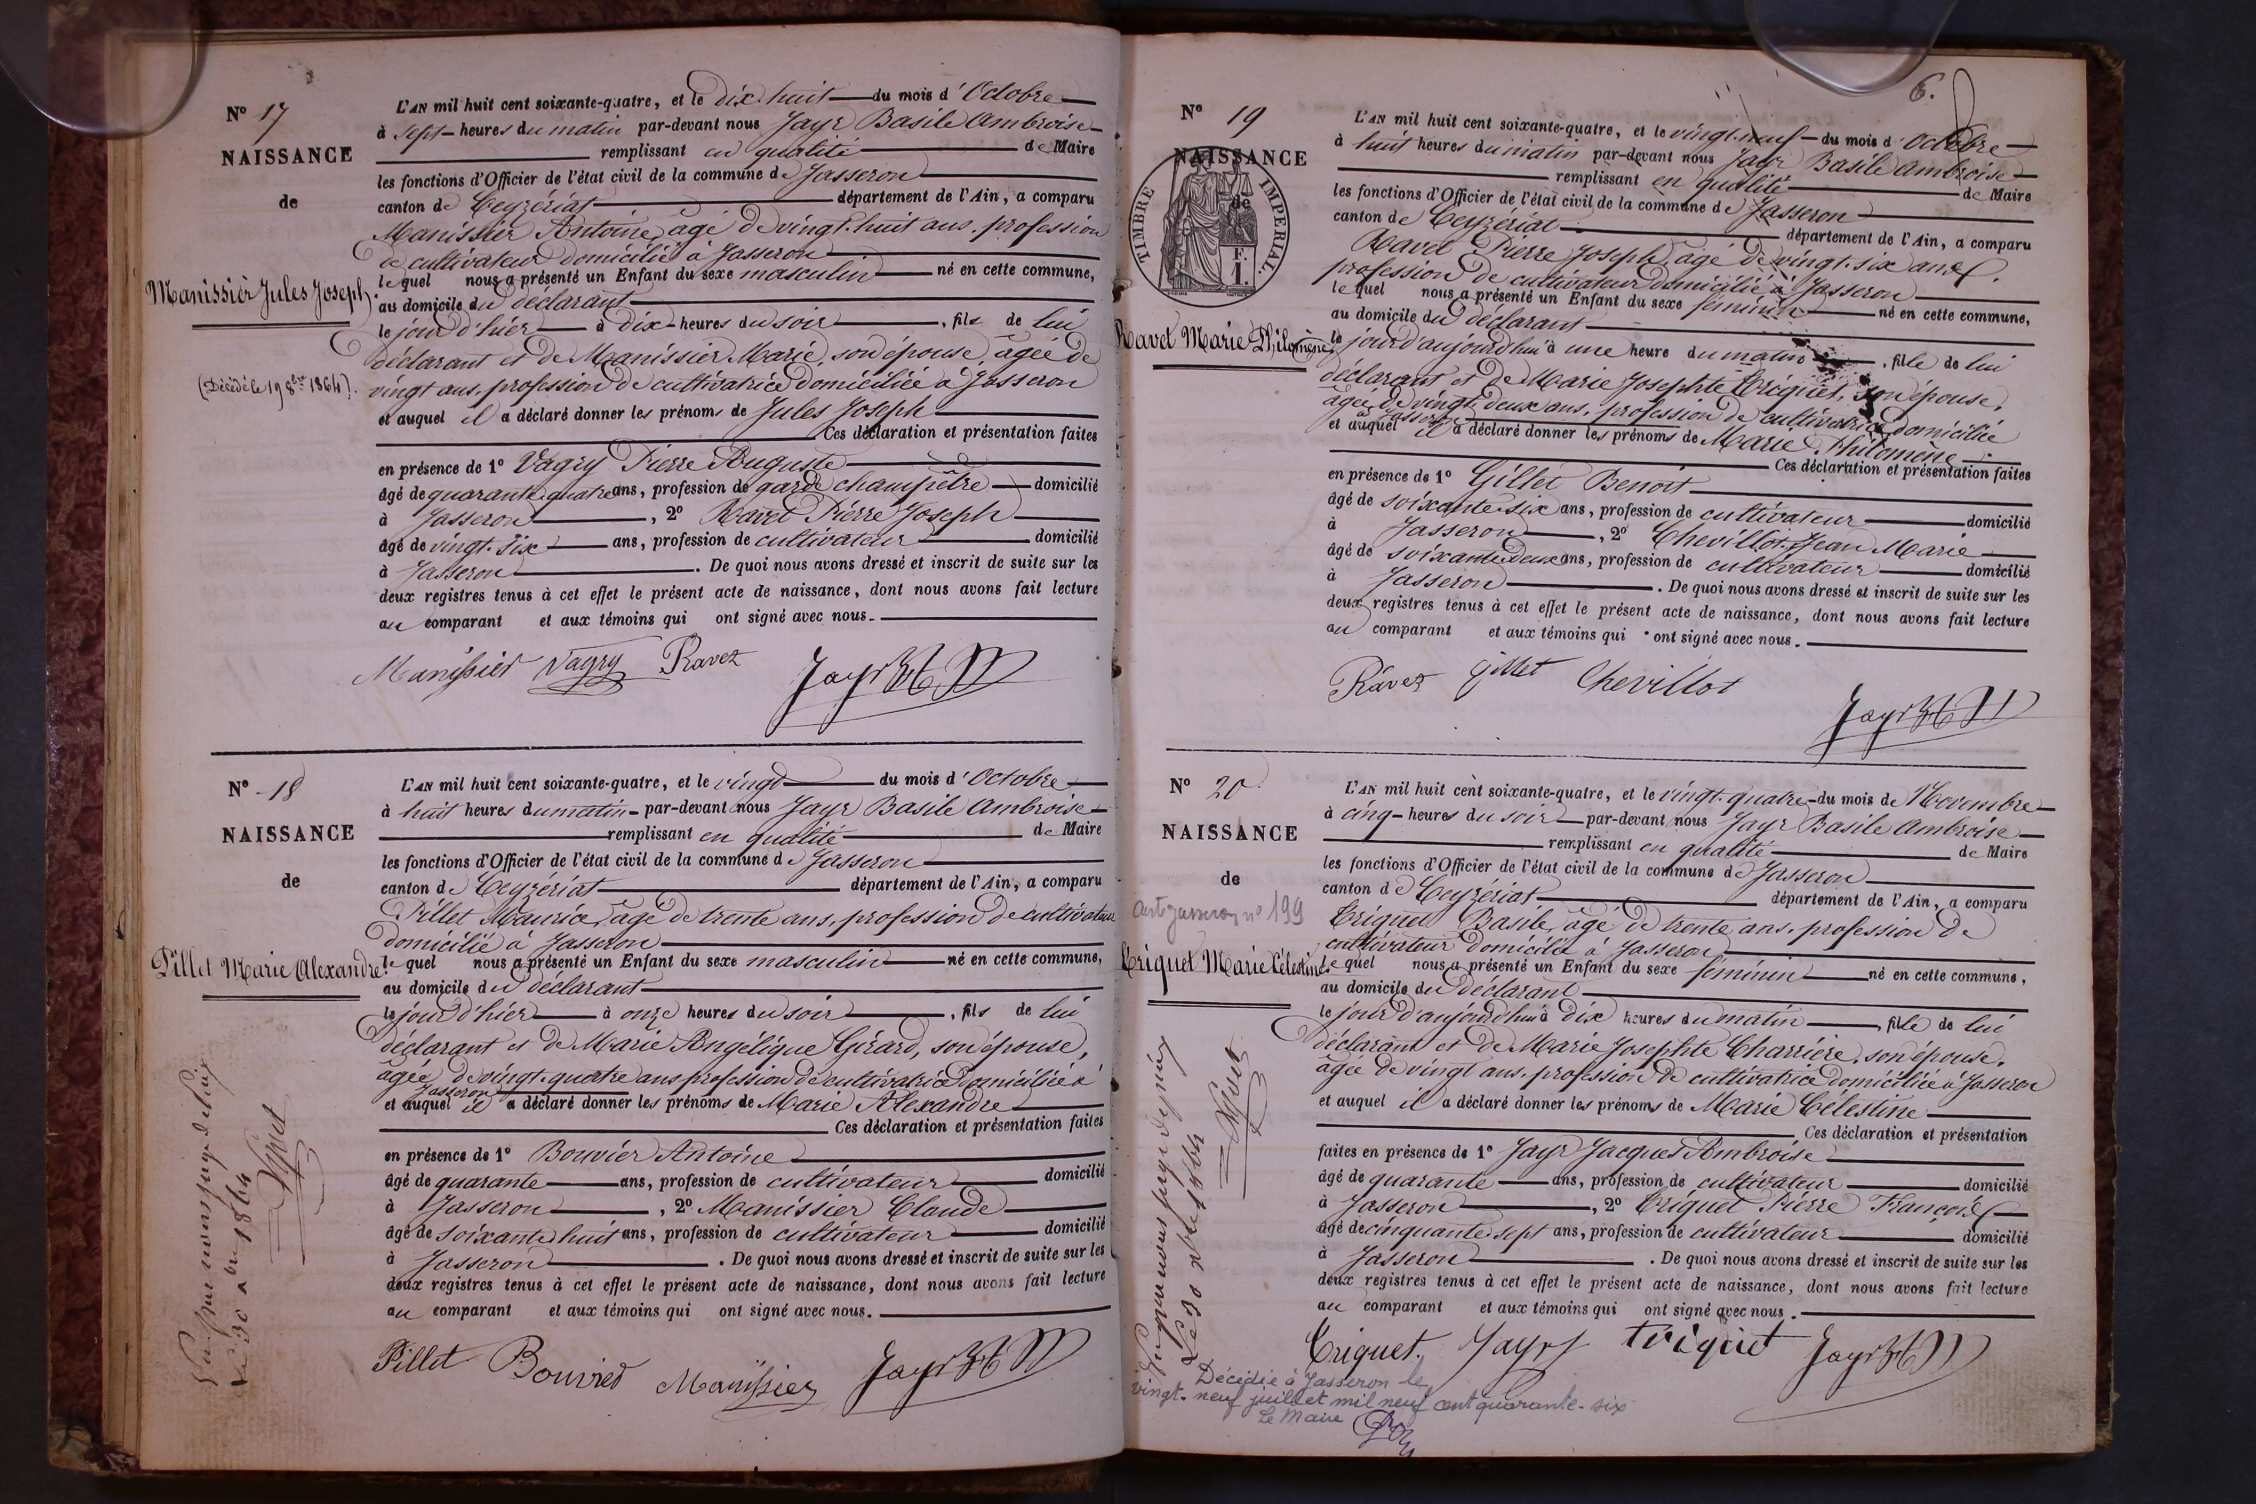 N° 17
NAISSANCE
de
Manissier Jules Joseph
(Décédé le 19 8bre 1864).
L'AN mil huit cent soixante-quatre, et le dix huit du mois d'Octobre
à Sept heures du matin par-devant nous Jayr Basile Ambroise
remplissant en qualité de Maire
les fonctions d'Officier de l'état civil de la commune de Jasseron
canton de Ceyzériat département de l'Ain, a comparu
Manissier Antoine, âgé de vingt-huit ans, profession
de cultivateur domicilié à Jasseron
lequel nous a présenté un Enfant du sexe masculin né en cette commune,
au domicile du déclarant
le jour d'hier à dix heures du soir, fils de lui
déclarant et de Manissier Marie, son épouse, âgée de
vingt ans, profession de cultivatrice domiciliée à Jasseron
et auquel il a déclaré donner les prénoms de Jules Joseph
Ces déclaration et présentation faites
en présence de 1° Vagry Pierre Auguste
âgé de quarante quatre ans, profession de garde champêtre domicilié
à Jasseron, 2° Ravet Pierre Joseph
âgé de vingt-six ans, profession de cultivateur domicilié
à Jasseron. De quoi nous avons dressé et inscrit de suite sur les
deux registres tenus à cet effet le présent acte de naissance, dont nous avons fait lecture
au comparant et aux témoins qui ont signé avec nous.
Manissier Vagry Ravez Jayr
N° 18
NAISSANCE
de
Pillet Marie Alexandre.
L'AN mil huit cent soixante-quatre, et le vingt du mois d'Octobre
à huit heures du matin par-devant nous Jayr Basile Ambroise
remplissant en qualité de Maire
les fonctions d'Officier de l'état civil de la commune de Jasseron
canton de Ceyzériat département de l'Ain, a comparu
Pillet Maurice, âgé de trente ans, profession de cultivateur
domicilié à Jasseron
lequel nous a présenté un Enfant du sexe masculin né en cette commune,
au domicile du déclarant
le jour d'hier à onze heures du soir, fils de lui
déclarant et de Marie Angélique Girard, son épouse,
âgée de vingt-quatre ans profession de cultivatrice domiciliée à
Jasseron
et auquel il a déclaré donner les prénoms de Marie Alexandre
Ces déclaration et présentation faites
en présence de 1° Bouvier Antoine
âgé de quarante ans, profession de cultivateur domicilié
à Jasseron, 2° Manissier Claude
âgé de soixante huit ans, profession de cultivateur domicilié
à Jasseron. De quoi nous avons dressé et inscrit de suite sur les
deux registres tenus à cet effet le présent acte de naissance, dont nous avons fait lecture
au comparant et aux témoins qui ont signé avec nous.
Pillet Bouvier Manissier Jayr
Vu par nous juge de paix
Le 30 1864
6.
N° 19
NAISSANCE
de
TIMBRE IMPERIAL.
F.
1.
Ravet Marie Philomène
L'AN mil huit cent soixante-quatre, et le vingt-neuf du mois d'Octobre
à huit heures du matin par-devant nous Jayr Basile Ambroise
remplissant en qualité de Maire
les fonctions d'Officier de l'état civil de la commune de Jasseron
canton de Ceyzériat département de l'Ain, a comparu
Ravet Pierre Joseph âgé de vingt-six ans,
profession de cultivateur domicilié à Jasseron
lequel nous a présenté un Enfant du sexe féminin né en cette commune,
au domicile du déclarant
le jour d'aujourd'hui à une heure du matin, fille de lui
déclarant et de Marie Josephte Criquet, son épouse,
âgée de vingt deux ans, profession de cultivatrice domiciliée
à Jasseron
et auquel il a déclaré donner les prénoms de Marie Philomène
Ces déclaration et présentation faites
en présence de 1° Gillet Benoit
âgé de soixante-six ans, profession de cultivateur domicilié
à Jasseron, 2° Chevillot Jean Marie
âgé de soixante deux ans, profession de cultivateur domicilié
à Jasseron. De quoi nous avons dressé et inscrit de suite sur les
deux registres tenus à cet effet le présent acte de naissance, dont nous avons fait lecture
au comparant et aux témoins qui ont signé avec nous.
Ravez Gillet Chevillot Jayr
N° 20
NAISSANCE
de
Jasseron n° 199
Criquet Marie Célestine
L'AN mil huit cent soixante-quatre, et le vingt-quatre du mois de Novembre
à cinq heures du soir par-devant nous Jayr Basile Ambroise
remplissant en qualité de Maire
les fonctions d'Officier de l'état civil de la commune de Jasseron
canton de Ceyzériat département de l'Ain, a comparu
Criquet Basile, âgé de trente ans, profession de
cultivateur domicilié à Jasseron
lequel nous a présenté un Enfant du sexe féminin né en cette commune,
au domicile du déclarant
le jour d'aujourd'hui à dix heures du matin, fille de lui
déclarant et de Marie Josephte Charrière, son épouse,
âgée de vingt ans, profession de cultivatrice domiciliée à Jasseron
et auquel il a déclaré donner les prénoms de Marie Célestine
Ces déclaration et présentation
faites en présence de 1° Jayr Jacques Ambroise
âgé de quarante ans, profession de cultivateur domicilié
à Jasseron, 2° Criquet Pierre François
âgé de cinquante sept ans, profession de cultivateur domicilié
à Jasseron. De quoi nous avons dressé et inscrit de suite sur les
deux registres tenus à cet effet le présent acte de naissance, dont nous avons fait lecture
au comparant et aux témoins qui ont signé avec nous.
Criquet. Jayr Criquet Jayr
Vu par nous juge de paix
Le 30 1864
Décédée à Jasseron le
vingt-neuf juillet mil neuf cent quarante-six
Le Maire